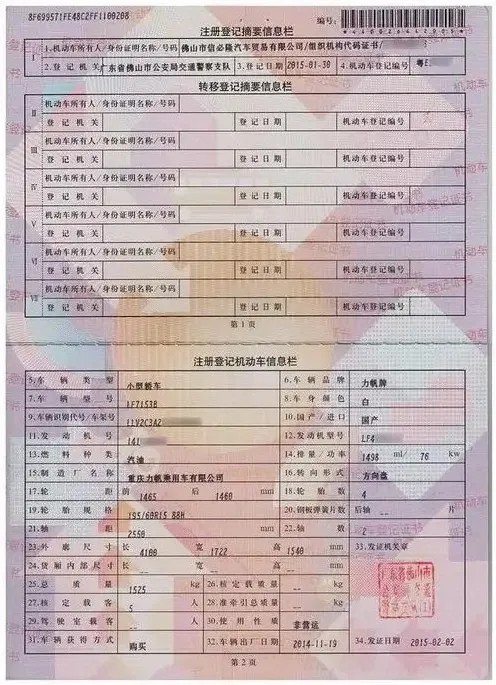 8F699571FE48C2FF1100208
编号:
注册登记摘要信息栏
Ⅰ 1.机动车所有人/身份证明名称/号码 佛山市信必隆汽车贸易有限公司/组织机构代码证书/
2.登记机关 广东省佛山市公安局交通警察支队 3.登记日期 2015-01-30 4.机动车登记编号 粤E
转移登记摘要信息栏
Ⅱ 机动车所有人/身份证明名称/号码
登记机关 登记日期 机动车登记编号
Ⅲ 机动车所有人/身份证明名称/号码
登记机关 登记日期 机动车登记编号
Ⅳ 机动车所有人/身份证明名称/号码
登记机关 登记日期 机动车登记编号
Ⅴ 机动车所有人/身份证明名称/号码
登记机关 登记日期 机动车登记编号
Ⅵ 机动车所有人/身份证明名称/号码
登记机关 登记日期 机动车登记编号
Ⅶ 机动车所有人/身份证明名称/号码
登记机关 登记日期 机动车登记编号
第1页
注册登记机动车信息栏
5.车辆类型 小型轿车 6.车辆品牌 力帆牌
7.车辆型号 LF7153B 8.车身颜色 白
9.车辆识别代号/车架号 LLV2C3A2 10.国产/进口 国产
11.发动机号 14L 12.发动机型号 LF4
13.燃料种类 汽油 14.排量/功率 1498 ml/ 76 kw
15.制造厂名称 重庆力帆乘用车有限公司 16.转向形式 方向盘
17.轮距 前 1465 后 1460 mm 18.轮胎数 4
19.轮胎规格 195/60R15 88H 20.钢板弹簧片数 后轴 -- 片
21.轴距 2550 mm 22.轴数 2
23.外廓尺寸 长 4108 宽 1722 高 1540 mm 33.发证机关章
24.货厢内部尺寸 长 -- 宽 -- 高 -- mm
25.总质量 1525 kg 26.核定载质量 -- kg
27.核定载客 5 人 28.准牵引总质量 -- kg
29.驾驶室载客 -- 人 30.使用性质 非营运
31.车辆获得方式 购买 32.车辆出厂日期 2014-11-19 34.发证日期 2015-02-02
第2页